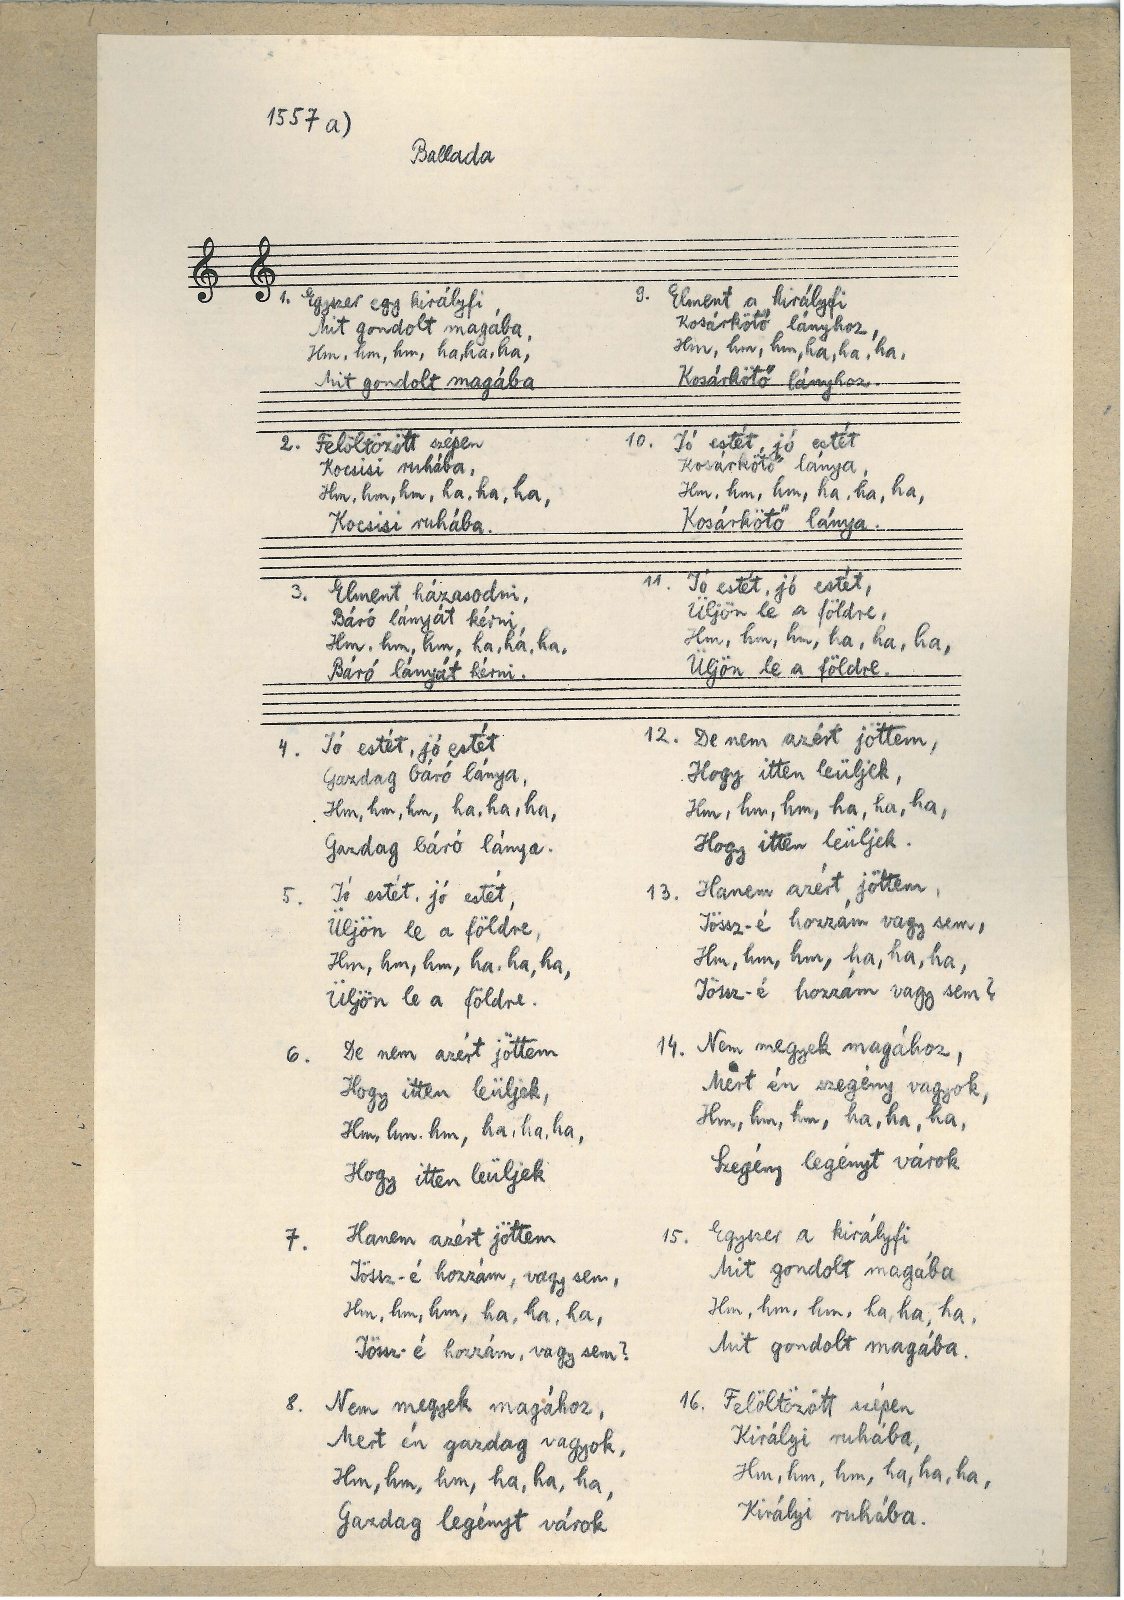 1557 a)
Ballada
1. Egyszer egy királyfi
Mit gondolt magába,
Hm, hm, hm, ha, ha, ha,
Mit gondolt magába
2. Felöltözött szépen
Kocsisi ruhába,
Hm, hm, hm, ha, ha, ha,
Kocsisi ruhába.
3. Elment házasodni,
Báró lányát kérni,
Hm, hm, hm, ha, ha, ha,
Báró lányát kérni.
4. Jó estét, jó estét
Gazdag báró lánya,
Hm, hm, hm, ha, ha, ha,
Gazdag báró lánya.
5. Jó estét, jó estét,
Üljön le a földre,
Hm, hm, hm, ha, ha, ha,
Üljön le a földre.
6. De nem azért jöttem
Hogy itten leüljek,
Hm, hm, hm, ha, ha, ha,
Hogy itten leüljek
7. Hanem azért jöttem
Jössz-é hozzám, vagy sem,
Hm, hm, hm, ha, ha, ha,
Jössz-é hozzám, vagy sem?
8. Nem megyek magához,
Mert én gazdag vagyok,
Hm, hm, hm, ha, ha, ha,
Gazdag legényt várok
9. Elment a királyfi
Kosárkötő lányhoz,
Hm, hm, hm, ha, ha, ha,
Kosárkötő lányhoz.
10. Jó estét, jó estét
Kosárkötő lánya,
Hm, hm, hm, ha, ha, ha,
Kosárkötő lánya.
11. Jó estét, jó estét,
Üljön le a földre,
Hm, hm, hm, ha, ha, ha,
Üljön le a földre.
12. De nem azért jöttem,
Hogy itten leüljek,
Hm, hm, hm, ha, ha, ha,
Hogy itten leüljek.
13. Hanem azért jöttem,
Jössz-é hozzám vagy sem,
Hm, hm, hm, ha, ha, ha,
Jössz-é hozzám vagy sem?
14. Nem megyek magához,
Mert én szegény vagyok,
Hm, hm, hm, ha, ha, ha,
Szegény legényt várok
15. Egyszer a királyfi
Mit gondolt magába
Hm, hm, hm, ha, ha, ha,
Mit gondolt magába.
16. Felöltözött szépen
Királyi ruhába,
Hm, hm, hm, ha, ha, ha,
Királyi ruhába.